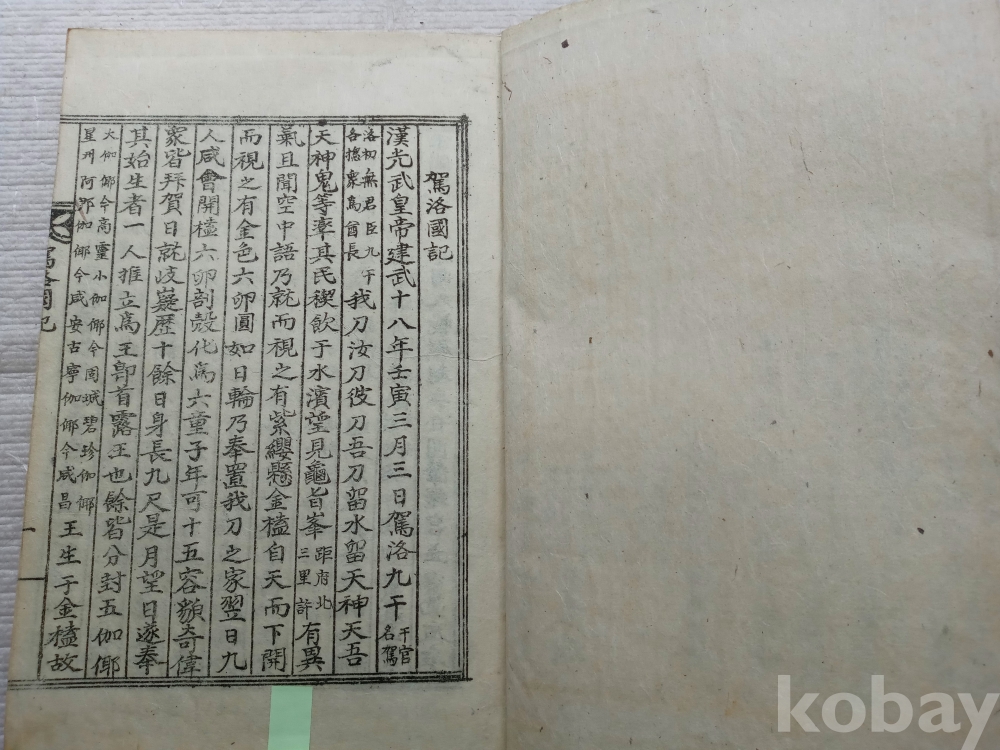 駕洛國記
漢光武皇帝建武十八年壬寅三月三日駕洛九干干官名駕
洛初無君臣九干各摠衆爲酋長我刀汝刀彼刀吾刀留水留天神天吾
天神鬼等率其民禊飮于水濱望見龜旨峯距府北三里許有異
氣且聞空中語乃就而視之有紫纓懸金榼自天而下開
而視之有金色六卵圓如日輪乃奉置我刀之家翌日九
人咸會開榼六卵剖殼化爲六童子年可十五容貌奇偉
衆皆拜賀日就岐嶷歷十餘日身長九尺是月望日遂奉
其始生者一人推立爲王卽首露王也餘皆分封五伽倻
大伽倻今高靈小伽倻今固城碧珍伽倻星州阿那伽倻今咸安古寧伽倻今咸昌王生于金榼故
駕洛國記
一
kobay